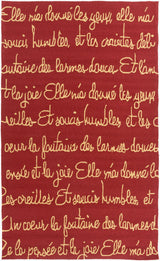 Elle m'a donné les yeux, elle m'a
soucis humbles, et les craintes déli
fontaine des larmes douces. Et l'am
et la joie Elle m'a donné les yeux,
oreilles. Et soucis humbles, et les c
coeur la fontaine des larmes dou
ensée et la joie. Elle m'a donné
Les oreilles. Et soucis humbles, et
Un coeur la fontaine des larmes d
Le la pensée et la joie. Elle m'a